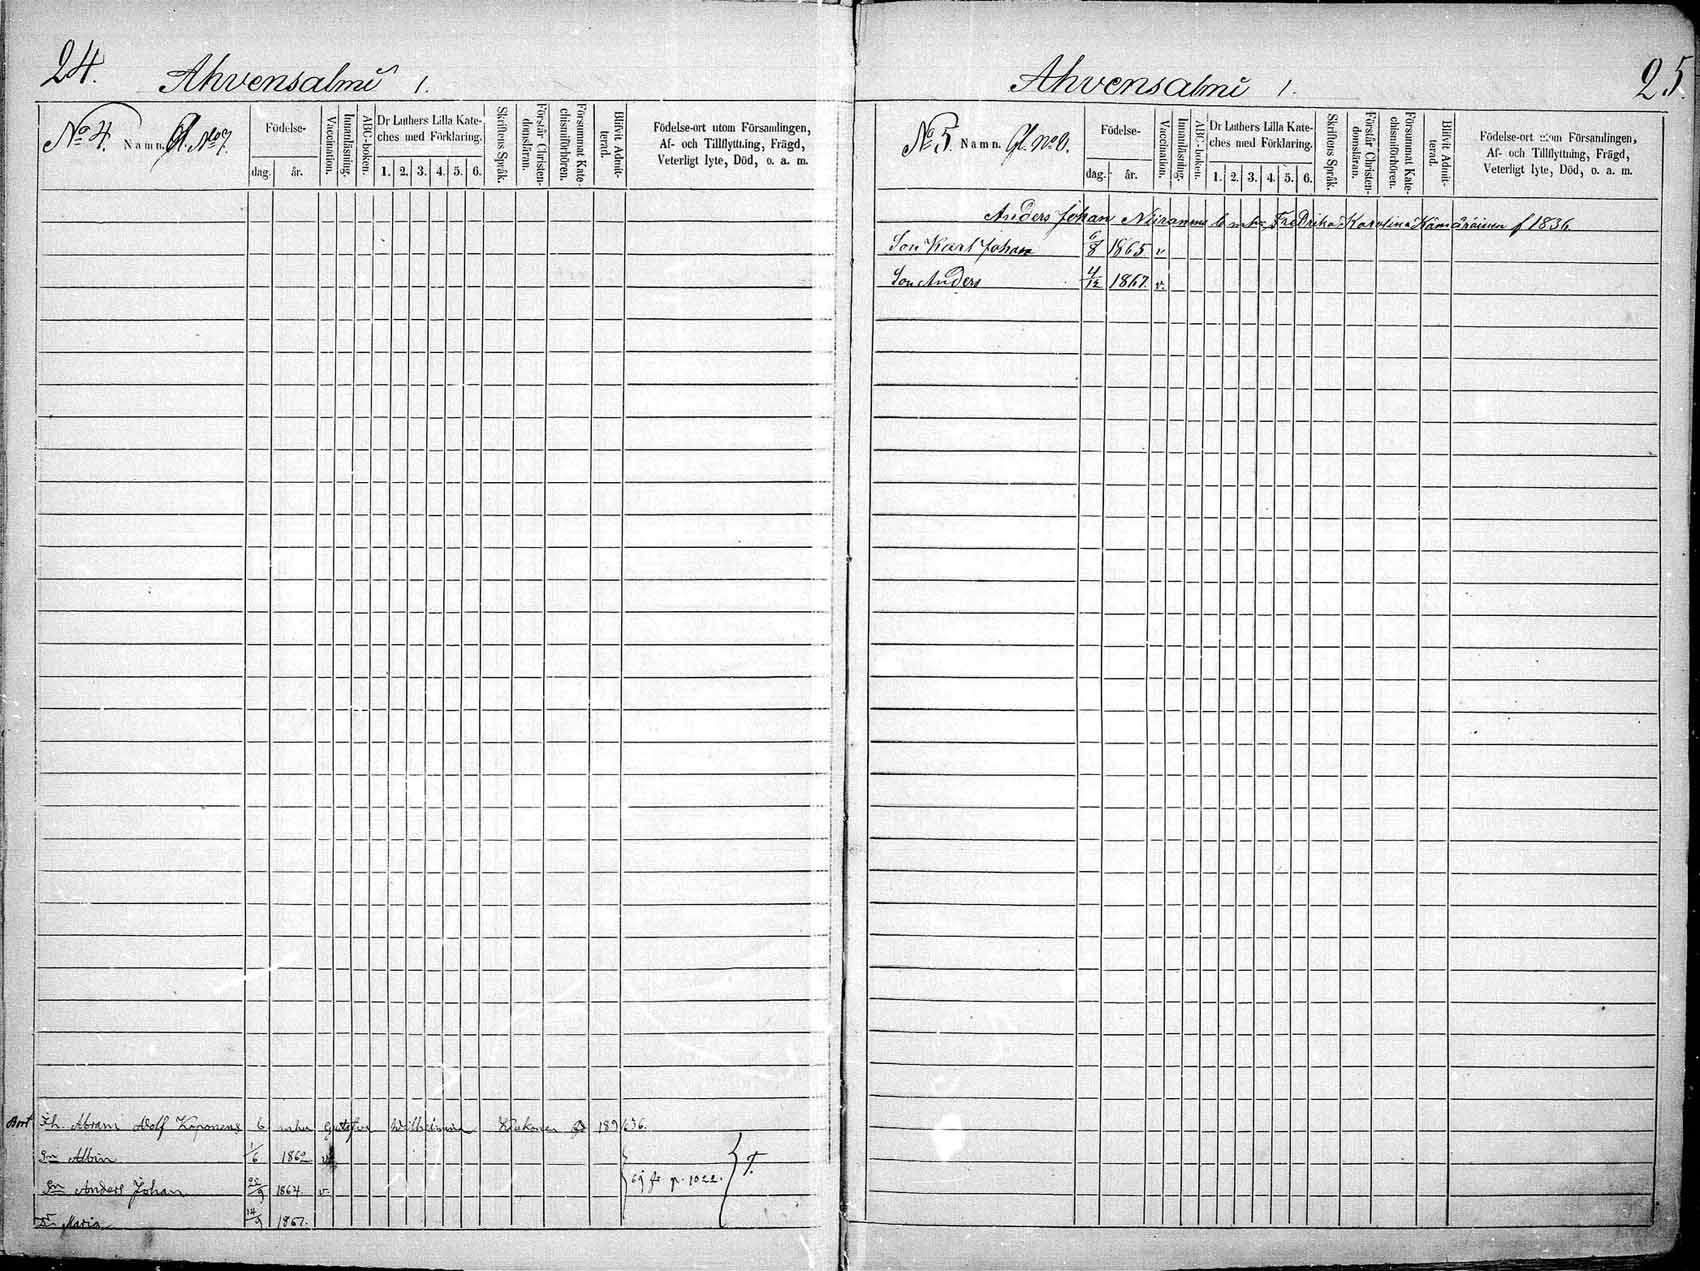 24.
Ahvensalmi 1.
No 4. Namn. Gl. No 7.
Födelse-
dag. år.
Vaccination.
Innanläsning.
ABC-boken.
Dr Luthers Lilla Kate-
ches med Förklaring.
1. 2. 3. 4. 5. 6.
Skriftens Språk.
Förstår Christen-
domsläran.
Försummat Kate-
chismiförhören.
Blifvit Admit-
terad.
Födelse-ort utom Församlingen,
Af- och Tillflyttning, Frägd,
Veterligt lyte, Död, o. a. m.
Bort Abram Adolf Koponens 6 Wilhelmina
Albin 1/6 1862 v
Anders Johan 1864. v.
p. 1022.
Dr Maria 14/9 1867.
25.
Ahvensalmi 1.
No 5. Namn. Gl. No
Födelse-
dag. år.
Vaccination.
Innanläsning.
ABC-boken.
Dr Luthers Lilla Kate-
ches med Förklaring.
1. 2. 3. 4. 5. 6.
Skriftens Språk.
Förstår Christen-
domsläran.
Försummat Kate-
chismiförhören.
Blifvit Admit-
terad.
Födelse-ort utom Församlingen,
Af- och Tillflyttning, Frägd,
Veterligt lyte, Död, o. a. m.
Anders Johan Niiranens b m hu Fredrika Karolina Kämäräinen f 1836.
Son Karl Johan 6/8 1865 v
Son Anders 4/12 1867. v.